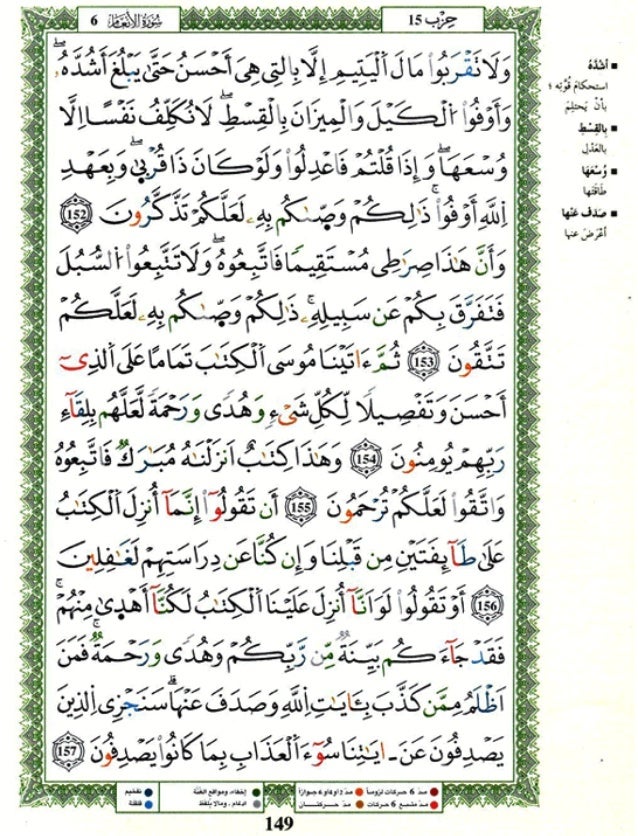 حِزْب 15
سُورَةُ الأَنْعَام 6
وَلَا تَقْرَبُواْ مَالَ اَلْيَتِيمِ إِلَّا بِالتِي هِيَ أَحْسَنُ حَتَّىٰ يَبْلُغَ أَشُدَّهُۥ
وَأَوْفُواْ اُلْكَيْلَ وَالْمِيزَانَ بِالْقِسْطِ لَا نُكَلِّفُ نَفْسًا اِلَّا
وُسْعَهَا وَإِذَا قُلْتُمْ فَاعْدِلُواْ وَلَوْ كَانَ ذَا قُرْبىٰ وَبِعَهْدِ
اِللَّهِ أَوْفُواْ ذَٰلِكُمْ وَصّىٰكُم بِهِۦ لَعَلَّكُمْ تَذَّكَّرُونَ 152
وَأَنَّ هَٰذَا صِرَٰطِى مُسْتَقِيمًا فَاتَّبِعُوهُ وَلَا تَتَّبِعُواْ اُلسُّبُلَ
فَتَفَرَّقَ بِكُمْ عَن سَبِيلِهِۦ ذَٰلِكُمْ وَصّىٰكُم بِهِۦ لَعَلَّكُمْ
تَتَّقُونَ 153 ثُمَّ ءَاتَيْنَا مُوسَى اَلْكِتَٰبَ تَمَامًا عَلَى اَلذِىٓ
أَحْسَنَ وَتَفْصِيلًا لِّكُلِّ شَىْءٍ وَهُدًى وَرَحْمَةً لَّعَلَّهُم بِلِقَآءِ
رَبِّهِمْ يُومِنُونَ 154 وَهَٰذَا كِتَٰبٌ اَنزَلْنَٰهُ مُبَٰرَكٌ فَاتَّبِعُوهُ
وَاتَّقُواْ لَعَلَّكُمْ تُرْحَمُونَ 155 أَن تَقُولُوٓاْ إِنَّمَآ أُنزِلَ اَلْكِتَٰبُ
عَلَىٰ طَآئِفَتَيْنِ مِن قَبْلِنَا وَإِن كُنَّا عَن دِرَاسَتِهِمْ لَغَٰفِلِينَ
156 أَوْ تَقُولُواْ لَوَ اَنَّآ أُنزِلَ عَلَيْنَا اَلْكِتَٰبُ لَكُنَّآ أَهْدىٰ مِنْهُمْ
فَقَدْ جَآءَكُم بَيِّنَةٌ مِّن رَّبِّكُمْ وَهُدًى وَرَحْمَةٌ فَمَنَ
اَظْلَمُ مِمَّن كَذَّبَ بِـَٔايَٰتِ اِللَّهِ وَصَدَفَ عَنْهَا سَنَجْزِى اِلذِينَ
يَصْدِفُونَ عَنَ ـ ايَٰتِنَا سُوٓءَ اَلْعَذَابِ بِمَا كَانُواْ يَصْدِفُونَ 157
■ أشُدَّهُ
استحكامَ قُوَّتِه ؛
بأنْ يَحتلِمَ
■ بِالقِسْطِ
بالعَدْلِ
■ وُسْعَهَا
طاقتَها
■ صَدَفَ عَنْها
أعْرَضَ عنها
● مدّ 6 حركات لزوماً ● مدّ 2 أو 4 أو 6 جوازاً ● إخفاء، ومواقع الغُنَّة ● تفخيم
● مدّ مشبع 6 حركات ● مدّ حركتان ● ادغام ، ومالا يلفظ ● قلقلة
149